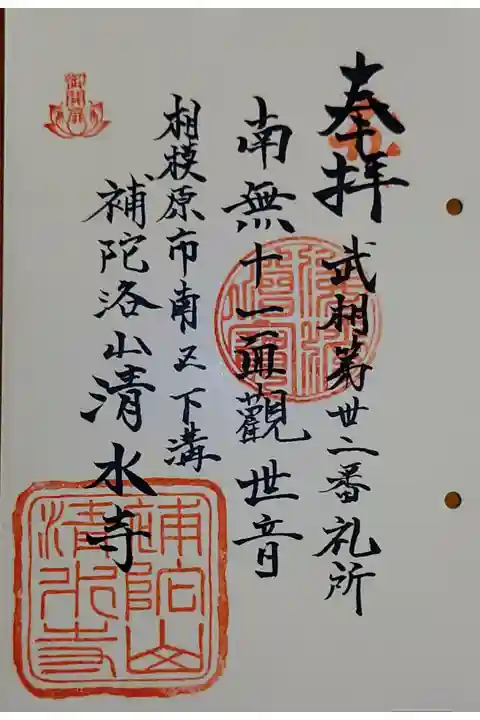 奉拝
武相第丗二番礼所
南無十一面觀世音
相模原市南区下溝
補陀洛山清水寺
御開扉
補陀山
清水寺